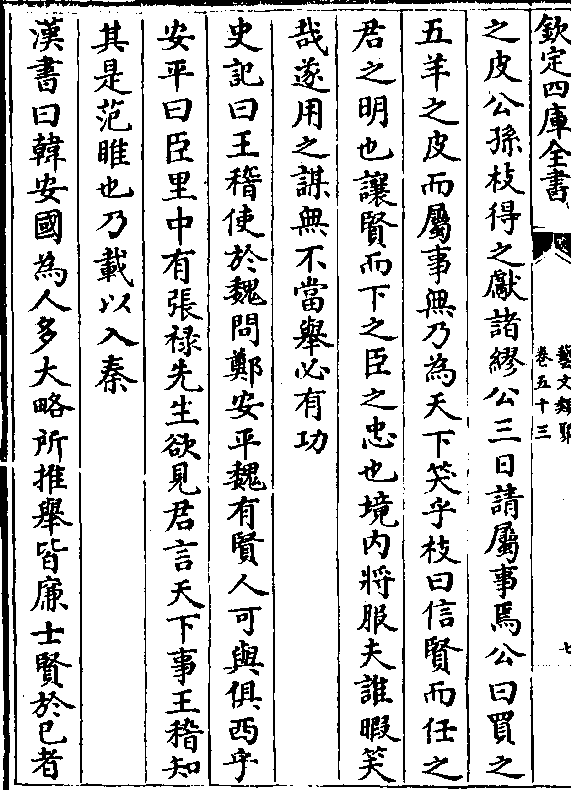 欽定四庫全書
藝文類聚
卷五十三
七
之皮公孫枝得之獻諸繆公三日請屬事焉公曰買之
五羊之皮而屬事無乃為天下笑乎枝曰信賢而任之
君之明也讓賢而下之臣之忠也境內將服夫誰暇笑
哉遂用之謀無不當舉必有功
史記曰王稽使於魏問鄭安平魏有賢人可與俱西乎
安平曰臣里中有張祿先生欲見君言天下事王稽知
其是范睢也乃載以入秦
漢書曰韓安國為人多大略所推舉皆廉士賢於已者